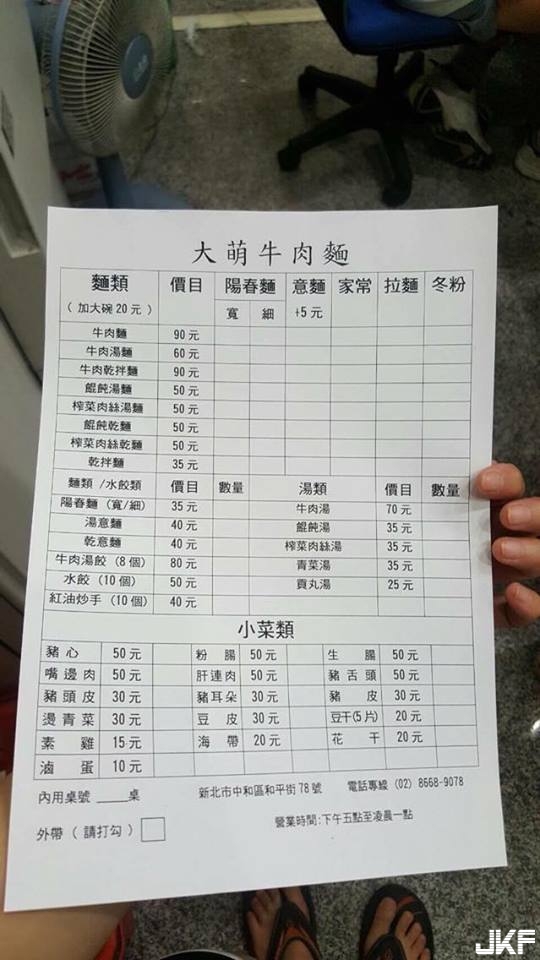 大萌牛肉麵
麵類 價目 陽春麵 意麵 家常 拉麵 冬粉
(加大碗20元) 寬 細 +5元
牛肉麵 90元
牛肉湯麵 60元
牛肉乾拌麵 90元
餛飩湯麵 50元
榨菜肉絲湯麵 50元
餛飩乾麵 50元
榨菜肉絲乾麵 50元
乾拌麵 35元
麵類/水餃類 價目 數量 湯類 價目 數量
陽春麵(寬/細) 35元 牛肉湯 70元
湯意麵 40元 餛飩湯 35元
乾意麵 40元 榨菜肉絲湯 35元
牛肉湯餃(8個) 80元 青菜湯 35元
水餃(10個) 50元 貢丸湯 25元
紅油炒手(10個) 40元
小菜類
豬心 50元 粉腸 50元 生腸 50元
嘴邊肉 50元 肝連肉 50元 豬舌頭 50元
豬頭皮 30元 豬耳朵 30元 豬皮 30元
燙青菜 30元 豆皮 30元 豆干(5片) 20元
素雞 15元 海帶 20元 花干 20元
滷蛋 10元
內用桌號 ____桌 新北市中和區和平街78號 電話專線(02) 8668-9078
外帶(請打勾) 營業時間:下午五點至凌晨一點
JKF